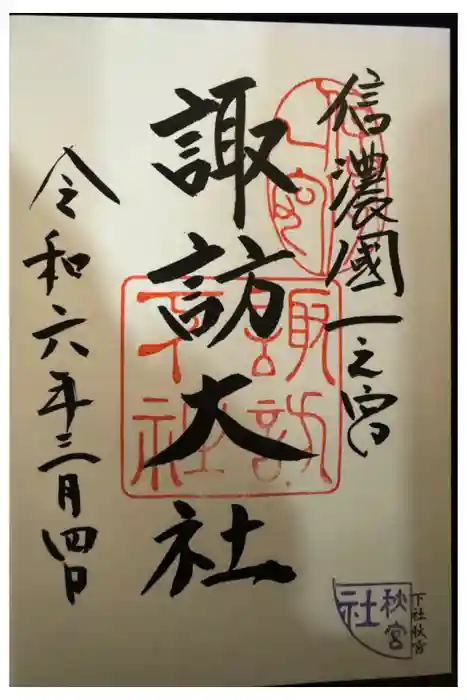 信濃國一之宮
諏訪大社
令和六年三月四日
諏訪下社
秋宮社
下社秋宮